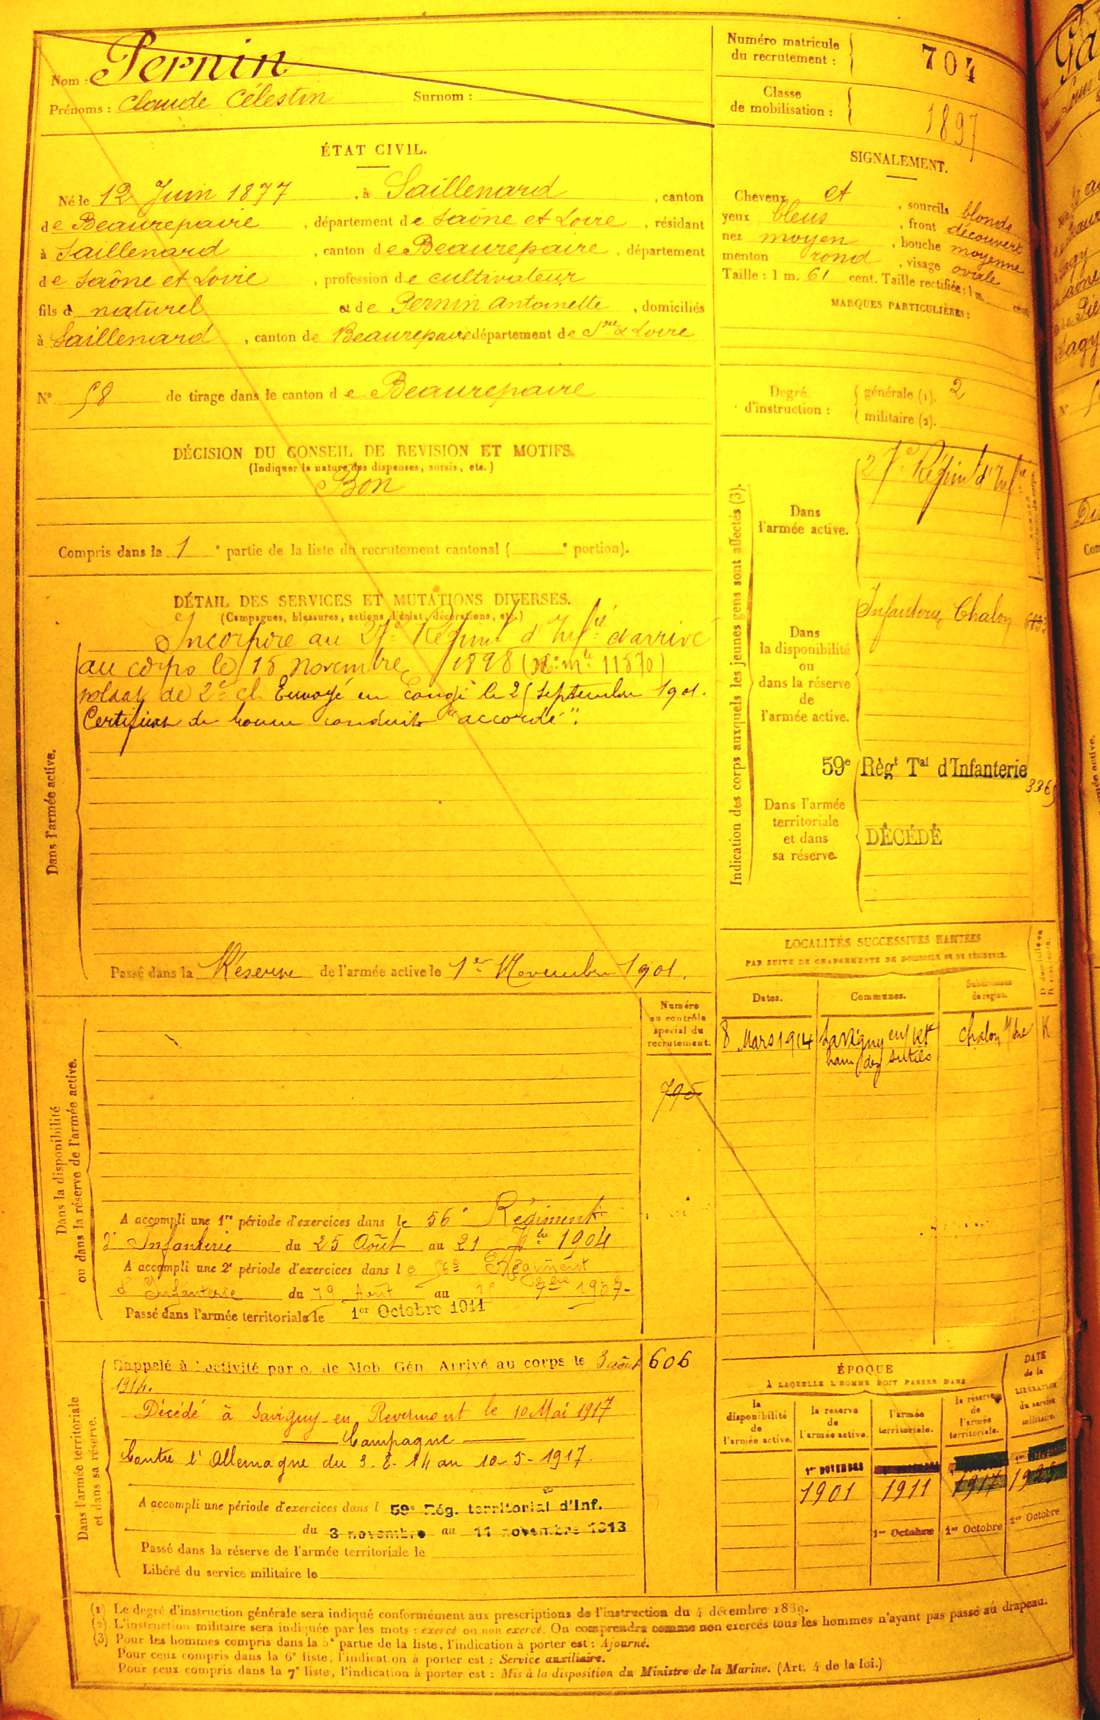 Nom : Pernin
Prénoms : Claude Célestin Surnom :
Numéro matricule du recrutement : 704
Classe de mobilisation : 1897
ÉTAT CIVIL.
Né le 12 Juin 1877, à Saillenard, canton
de Beaurepaire, département de Saône et Loire, résidant
à Saillenard, canton de Beaurepaire, département
de Saône et Loire, profession de cultivateur
fils d naturel et de Pernin Antoinette, domiciliés
à Saillenard, canton de Beaurepaire département de Sne & Loire
N° 58 de tirage dans le canton de Beaurepaire
SIGNALEMENT.
Cheveux et, sourcils blonds
yeux bleus, front découvert
nez moyen, bouche moyenne
menton rond, visage ovale
Taille : 1 m. 61 cent. Taille rectifiée : 1 m. cent.
MARQUES PARTICULIÈRES :
Degré d'instruction : générale (1). 2
militaire (2).
DÉCISION DU CONSEIL DE REVISION ET MOTIFS.
(Indiquer la nature des dispenses, sursis, etc.)
Bon
Compris dans la 1e partie de la liste du recrutement cantonal ( e portion).
DÉTAIL DES SERVICES ET MUTATIONS DIVERSES.
(Campagnes, blessures, actions d'éclat, décorations, etc.)
Dans l'armée active.
Incorporé au 27e Régimt d'Infie arrivé
au corps le 15 novembre 1898 (No: mle 11870)
soldat de 2e cl. Envoyé en Congé le 25 Septembre 1901.
Certificat de bonne conduite "accordé".
Passé dans la Réserve de l'armée active le 1er Novembre 1901.
Indication des corps auxquels les jeunes gens sont affectés (3).
Dans l'armée active.
27e Régimt d'Infie
Dans la disponibilité ou dans la réserve de l'armée active.
Infanterie Chalon
59e Régt Tal d'Infanterie
Dans l'armée territoriale et dans sa réserve.
DÉCÉDÉ
LOCALITÉS SUCCESSIVES HABITÉES
PAR SUITE DE CHANGEMENTS DE DOMICILE OU DE RÉSIDENCE.
Dates. Communes. Subdivisions de région.
8 Mars 1914 Savigny en Rt Chalon s/Sne R
ham des
Dans la disponibilité ou dans la réserve de l'armée active.
Numéro au contrôle spécial du recrutement.
795
A accompli une 1re période d'exercices dans le 56e Régiment
d'Infanterie du 25 Août au 21 7bre 1904
A accompli une 2e période d'exercices dans le 56e Régiment
d'Infanterie du 19 Août au 7bre 1907
Passé dans l'armée territoriale le 1er Octobre 1911
Dans l'armée territoriale et dans sa réserve.
Rappelé à l'activité par o. de Mob. Gén. Arrivé au corps le 3 août 606
1914.
Décédé à Savigny en Revermont le 10 Mai 1917
Campagne
Contre l'Allemagne du 3-8-14 au 10-5-1917.
A accompli une période d'exercices dans l 59e Rég. territorial d'Inf.
du 3 novembre au 11 novembre 1913
Passé dans la réserve de l'armée territoriale le
Libéré du service militaire le
ÉPOQUE
À LAQUELLE L'HOMME DOIT PASSER DANS
la disponibilité de l'armée active. la réserve de l'armée active. l'armée territoriale. la réserve de l'armée territoriale.
DATE de la LIBÉRATION du service militaire.
1er NOVEMBRE
1901 1911 1917
1er Octobre 1er Octobre 1er Octobre
(1) Le degré d'instruction générale sera indiqué conformément aux prescriptions de l'instruction du 4 décembre 1889.
(2) L'instruction militaire sera indiquée par les mots : exercé ou non exercé. On comprendra comme non exercés tous les hommes n'ayant pas passé au drapeau.
(3) Pour les hommes compris dans la 5e partie de la liste, l'indication à porter est : Ajourné.
Pour ceux compris dans la 6e liste, l'indication à porter est : Service auxiliaire.
Pour ceux compris dans la 7e liste, l'indication à porter est : Mis à la disposition du Ministre de la Marine. (Art. 4 de la loi.)